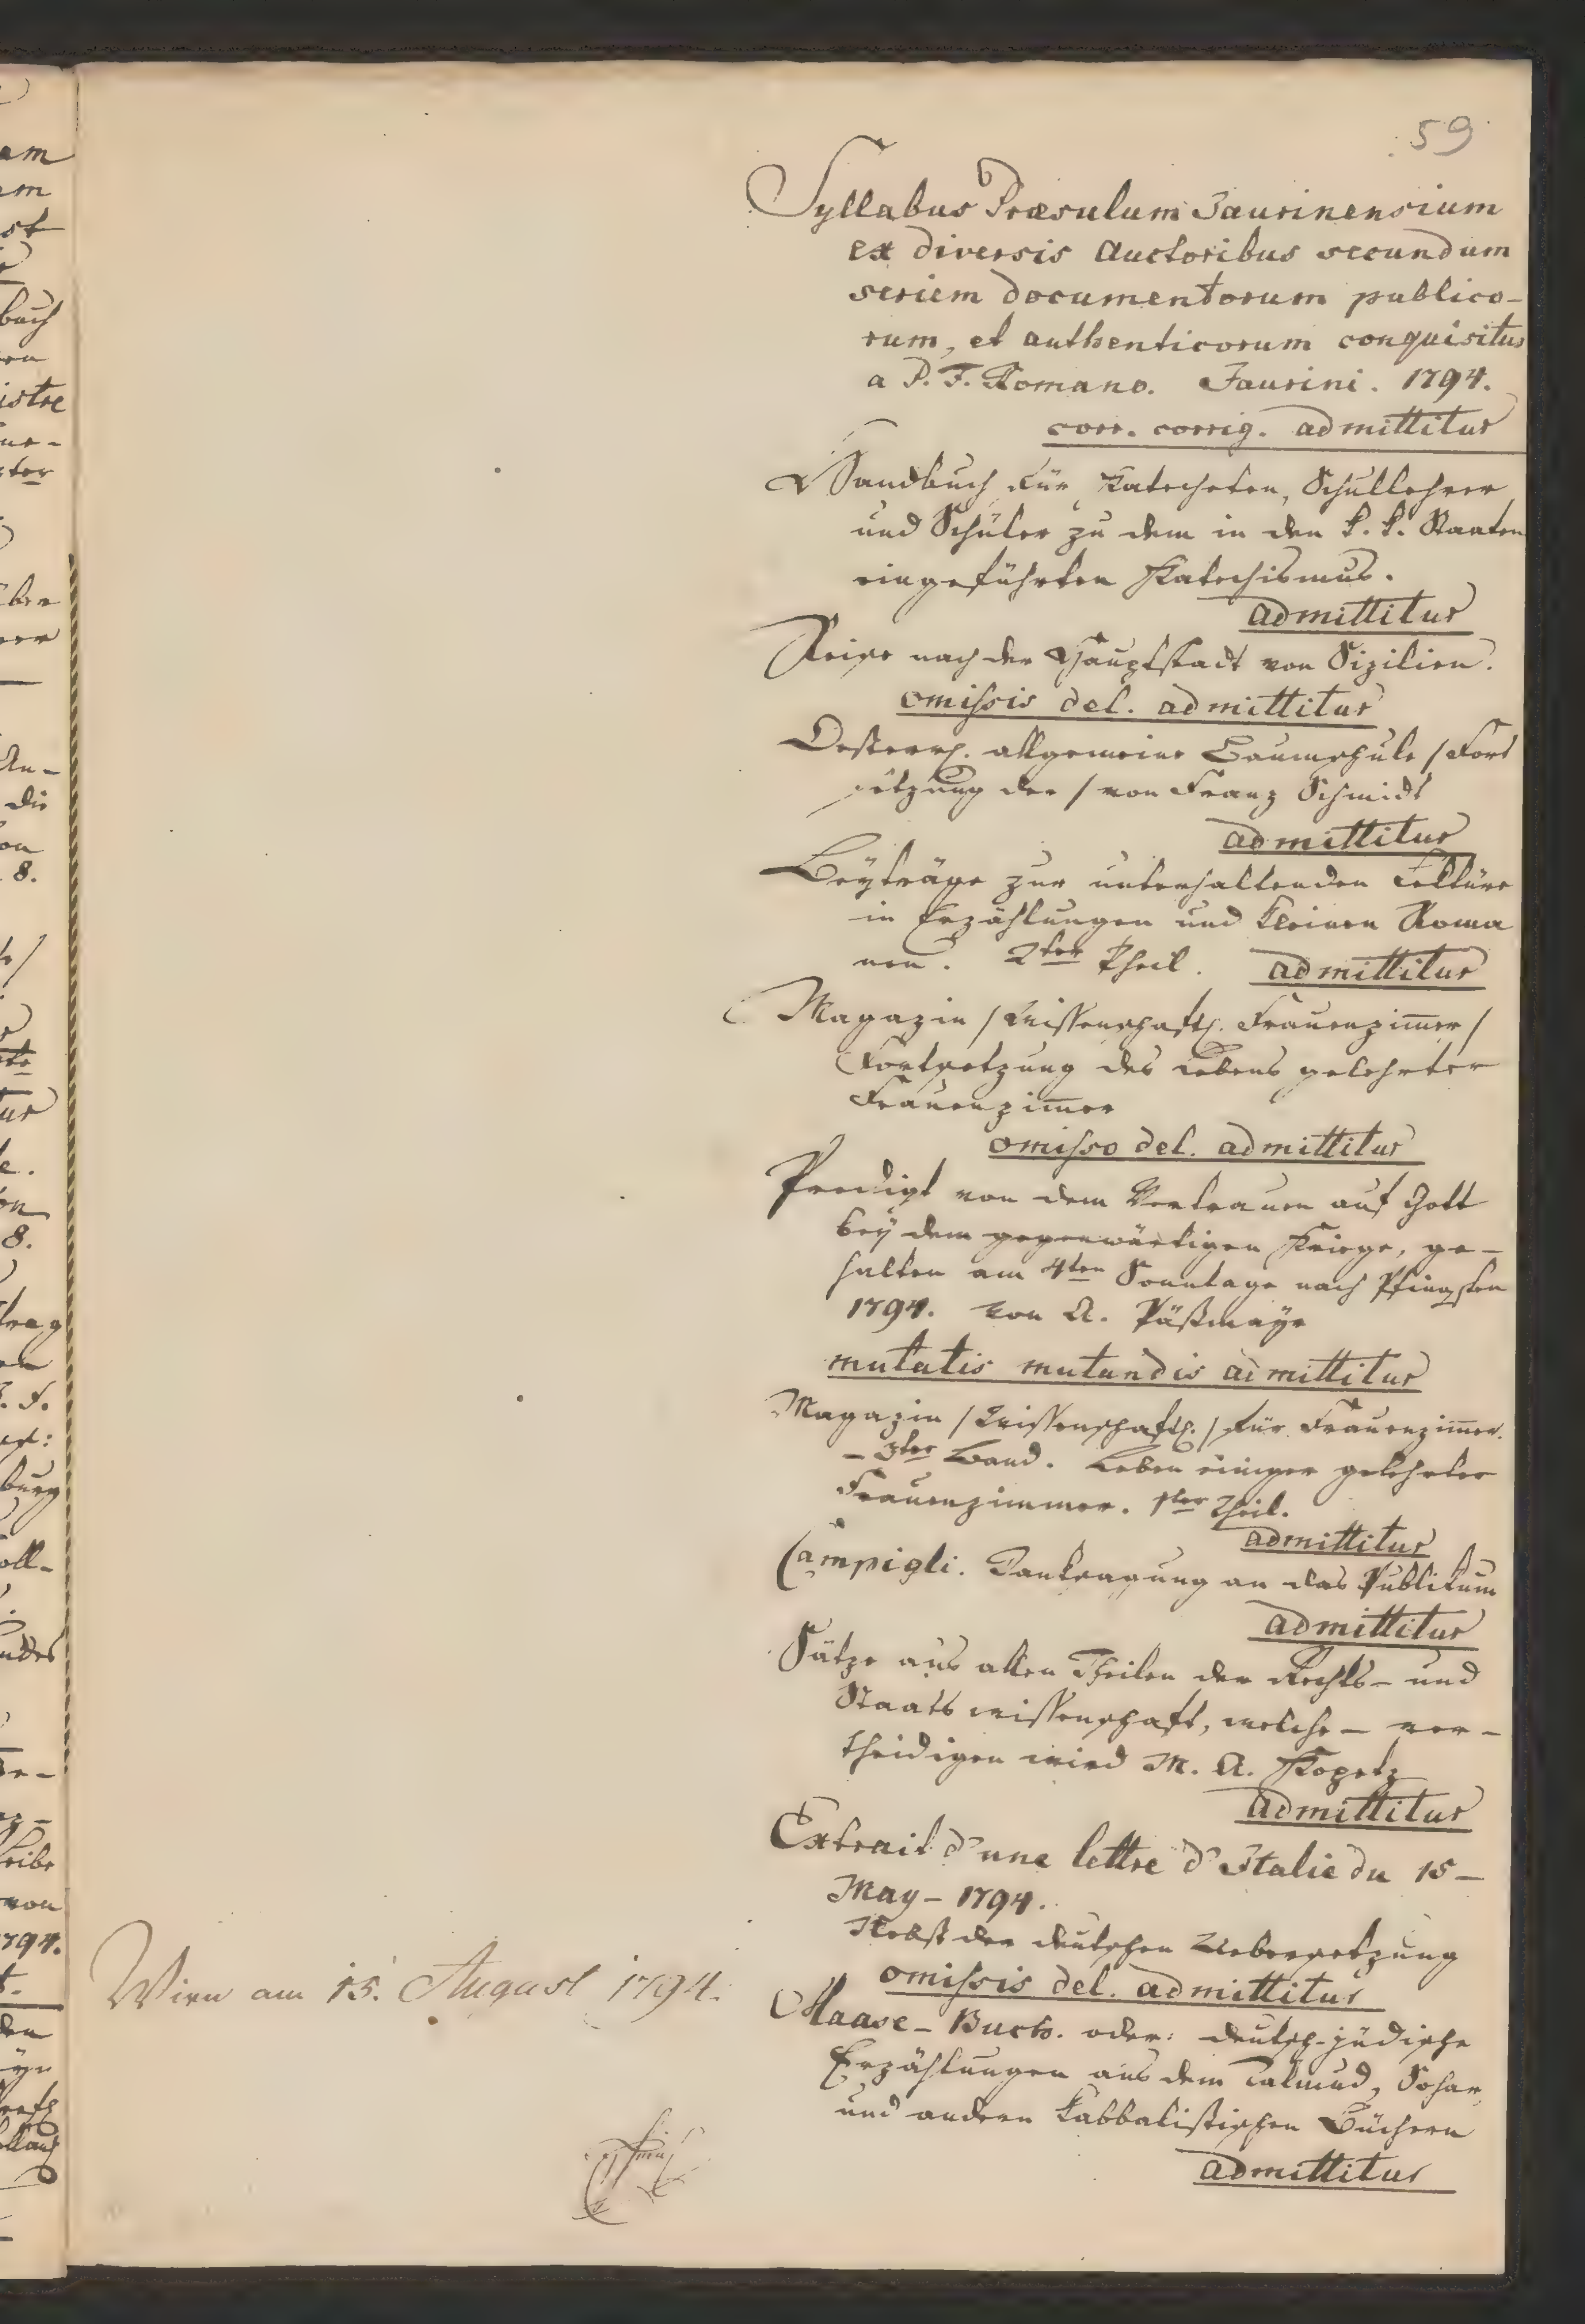 59
Syllabus Præsulum Jaurinensium
ex diversis Auctoribus secundum
seriem documentorum publico-
rum, et authenticorum conquisitus
a P. F. Romano. Jaurini. 1794.
corr. corrig. admittitur
Handbuch für Katecheten, Schullehrer
und Schüler zu dem in den k. k. Staaten
eingeführten Katechismus.
admittitur
Reise nach der Hauptstadt von Sizilien.
omissis del. admittitur
Oesterr. allgemeine Baumschule / Fort
setzung der / von Franz Schmidt
admittitur
Beyträge zur unterhaltenden Lektüre
in Erzählungen und kleinen Roma
nen. 2ter Theil. admittitur
Magazin / Wissenschaftl. Frauenzim̅er /
Fortsetzung des Lebens gelehrter
Frauenzim̅er
omisso del. admittitur
Predigt von dem Vertrauen auf Gott
bey dem gegenwärtigen Kriege, ge-
halten am 4ten Sonntage nach Pfingsten
1794. von A.
mutatis mutandis admittitur
Magazin / Wissenschaftl. / für Frauenzim̅er.
- 3ter Band. Leben einiger gelehrter
Frauenzimmer. 1ter Theil.
admittitur
Campigli. Danksagung an das Publikum
admittitur
Sätze aus allen Theilen der Rechts- und
Staatswissenschaft, welche - ver-
theidigen wird M. A. Kopetz
admittitur
Extrait d'une lettre d'Italie du 15-
May - 1794.
Nebst der deutschen Uebersetzung
omissis del. admittitur
Maase-Buch. oder: deutsch-jüdische
Erzählungen aus dem Talmud, Sohar,
und andern kabbalistischen Büchern
admittitur
Wien am 15. August 1794.